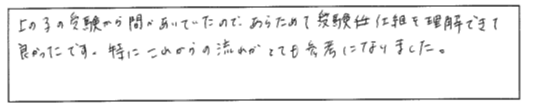 上の子の受験から間があいていたので、あらためて受験仕組を理解できて
良かったです。特にこれからの流れがとても参考になりました。